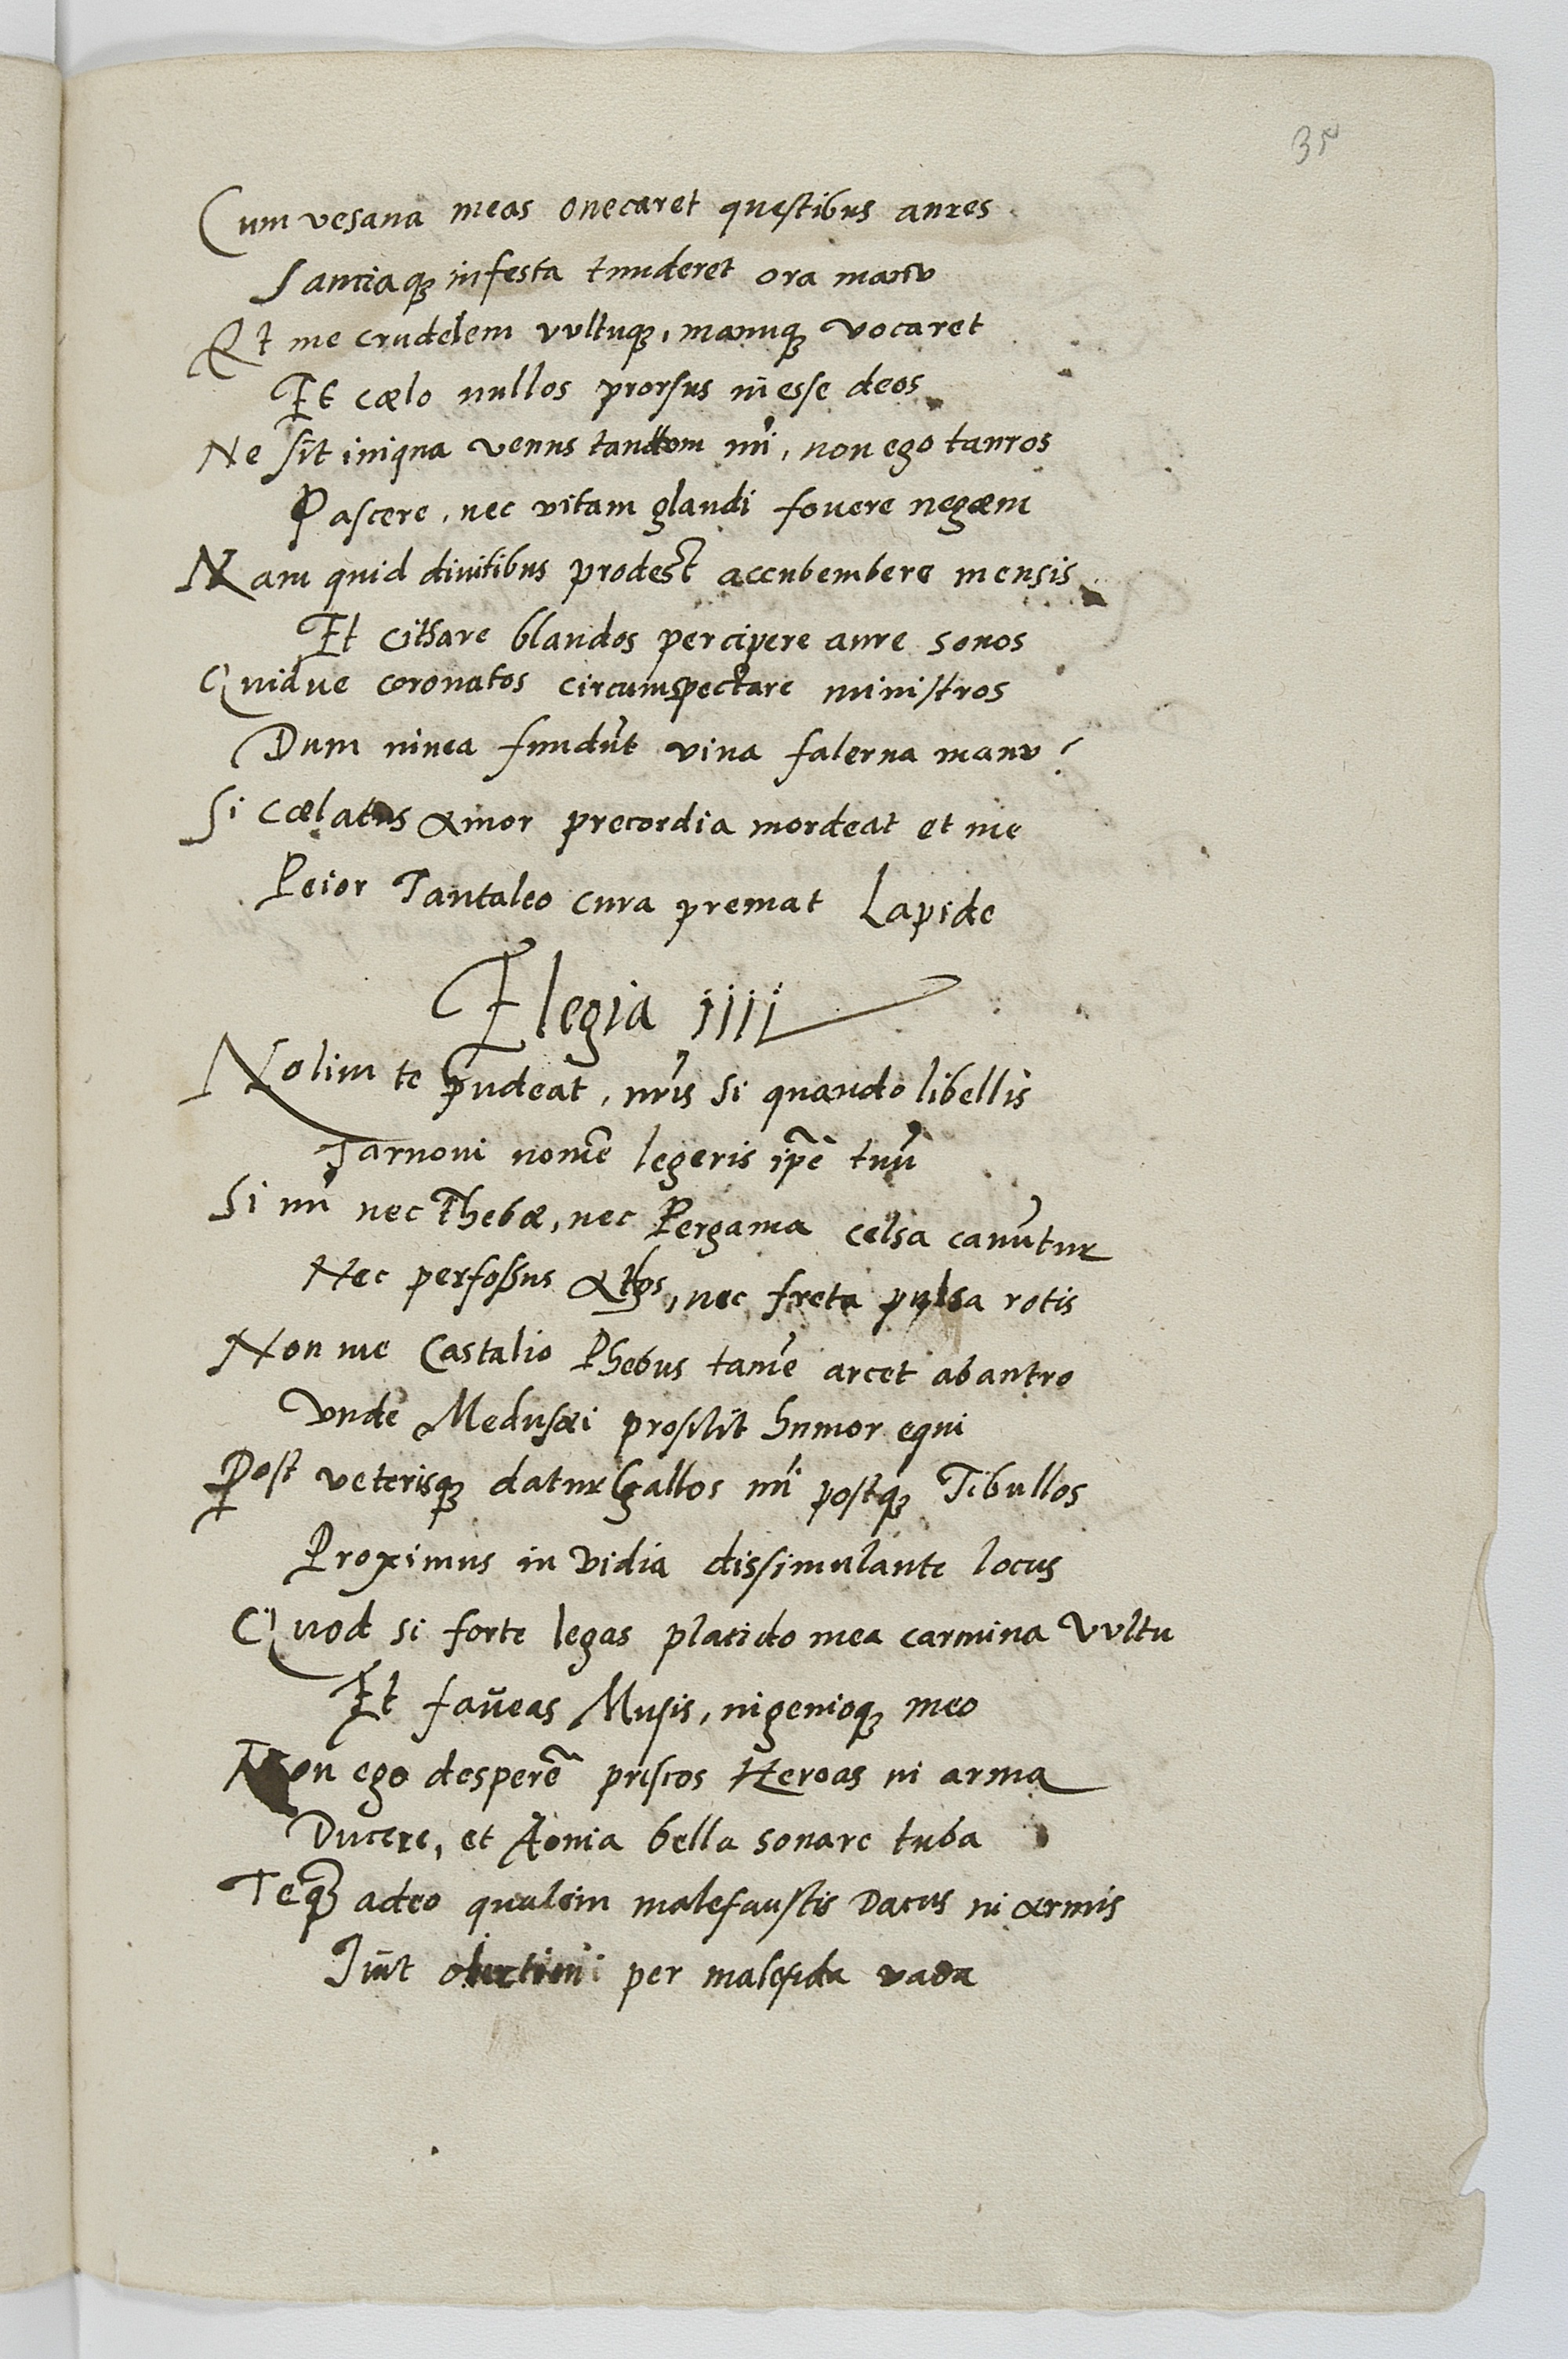 35
Cum vesana meas onecaret questibus aures
Sauciaq; infesta tunderet ora manu
Et me crudelem vultuq;, manuq; vocaret
Et cœlo nullos prorsus inesse deos
Ne sit iniqua venus tantom mi, non ego tauros
Pascere, nec vitam glandi fovere negem
Nam quid divitibus prodest accubembere mensis
Et cithare blandos percipere aure sonos
Quidve coronatos circumspectare ministros
Dum nivea fundūt vina falerna manu?
Si cælatus amor precordia mordeat et me
Peior Tantaleo cura premat Lapide
Elegia iiii
Nolim te pudeat, nr̄is si quando libellis
Tarnovi nomē legeris ip̄e tuū
Si mi nec Thebæ, nec Pergama celsa canūtur
Nec perfossus Athos, nec freta pulsa rotis
Non me Castalio Phebus tamē arcet abantro
Vnde Medusæi prosilit humor equi
Post veterisq; datur Gallos mi postq; Tibullos
Proximus invidia dissimulante locus
Quod si forte legas placido mea carmina vultu
Et faveas Musis, ingenioq; meo
Non ego desperē priscos Heroas in arma
Ducere, et Aonia bella sonare tuba
Teq; adeo qualem malefaustis Dacus in armis
per malefida vada